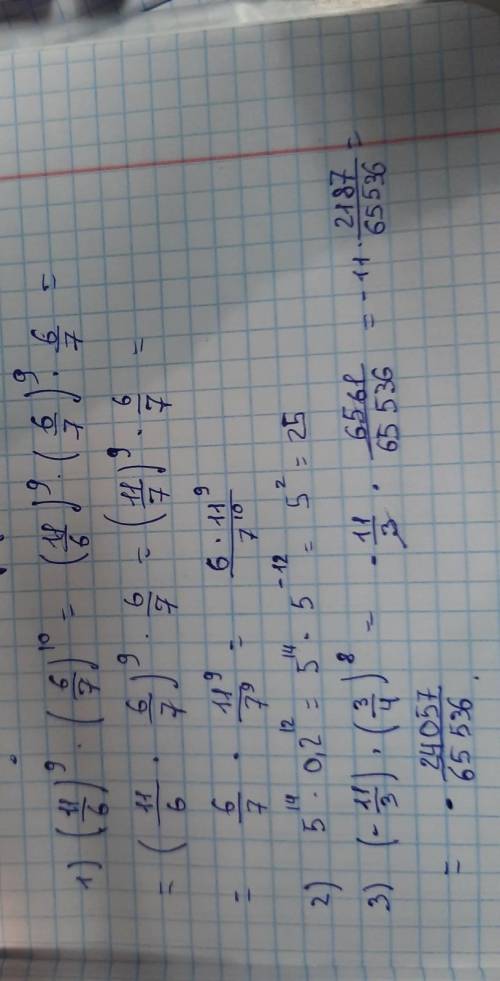 1) (11/6)^9 · (6/7)^10 = (11/6)^9 · (6/7)^9 · 6/7 =
= (11/6 · 6/7)^9 · 6/7 = (11/7)^9 · 6/7 =
= 6/7 · 11^9/7^9 = 6 · 11^9/7^10
2) 5^14 · 0,2^12 = 5^14 · 5^-12 = 5^2 = 25
3) (-11/3) · (3/4)^8 = - 11/3 · 6561/65 536 = -11 · 2187/65536 =
= - 24057/65 536 .